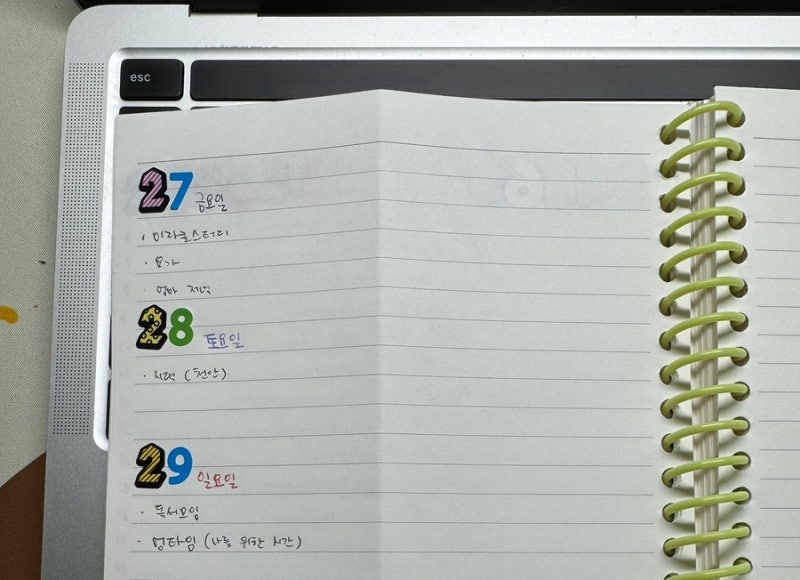 esc
27 금요일
· 미라클스터디
· 요가
· 엄마 저녁
28 토요일
· 시댁 (천안)
29 일요일
· 독서모임
· 엄타임 (나를 위한 시간)